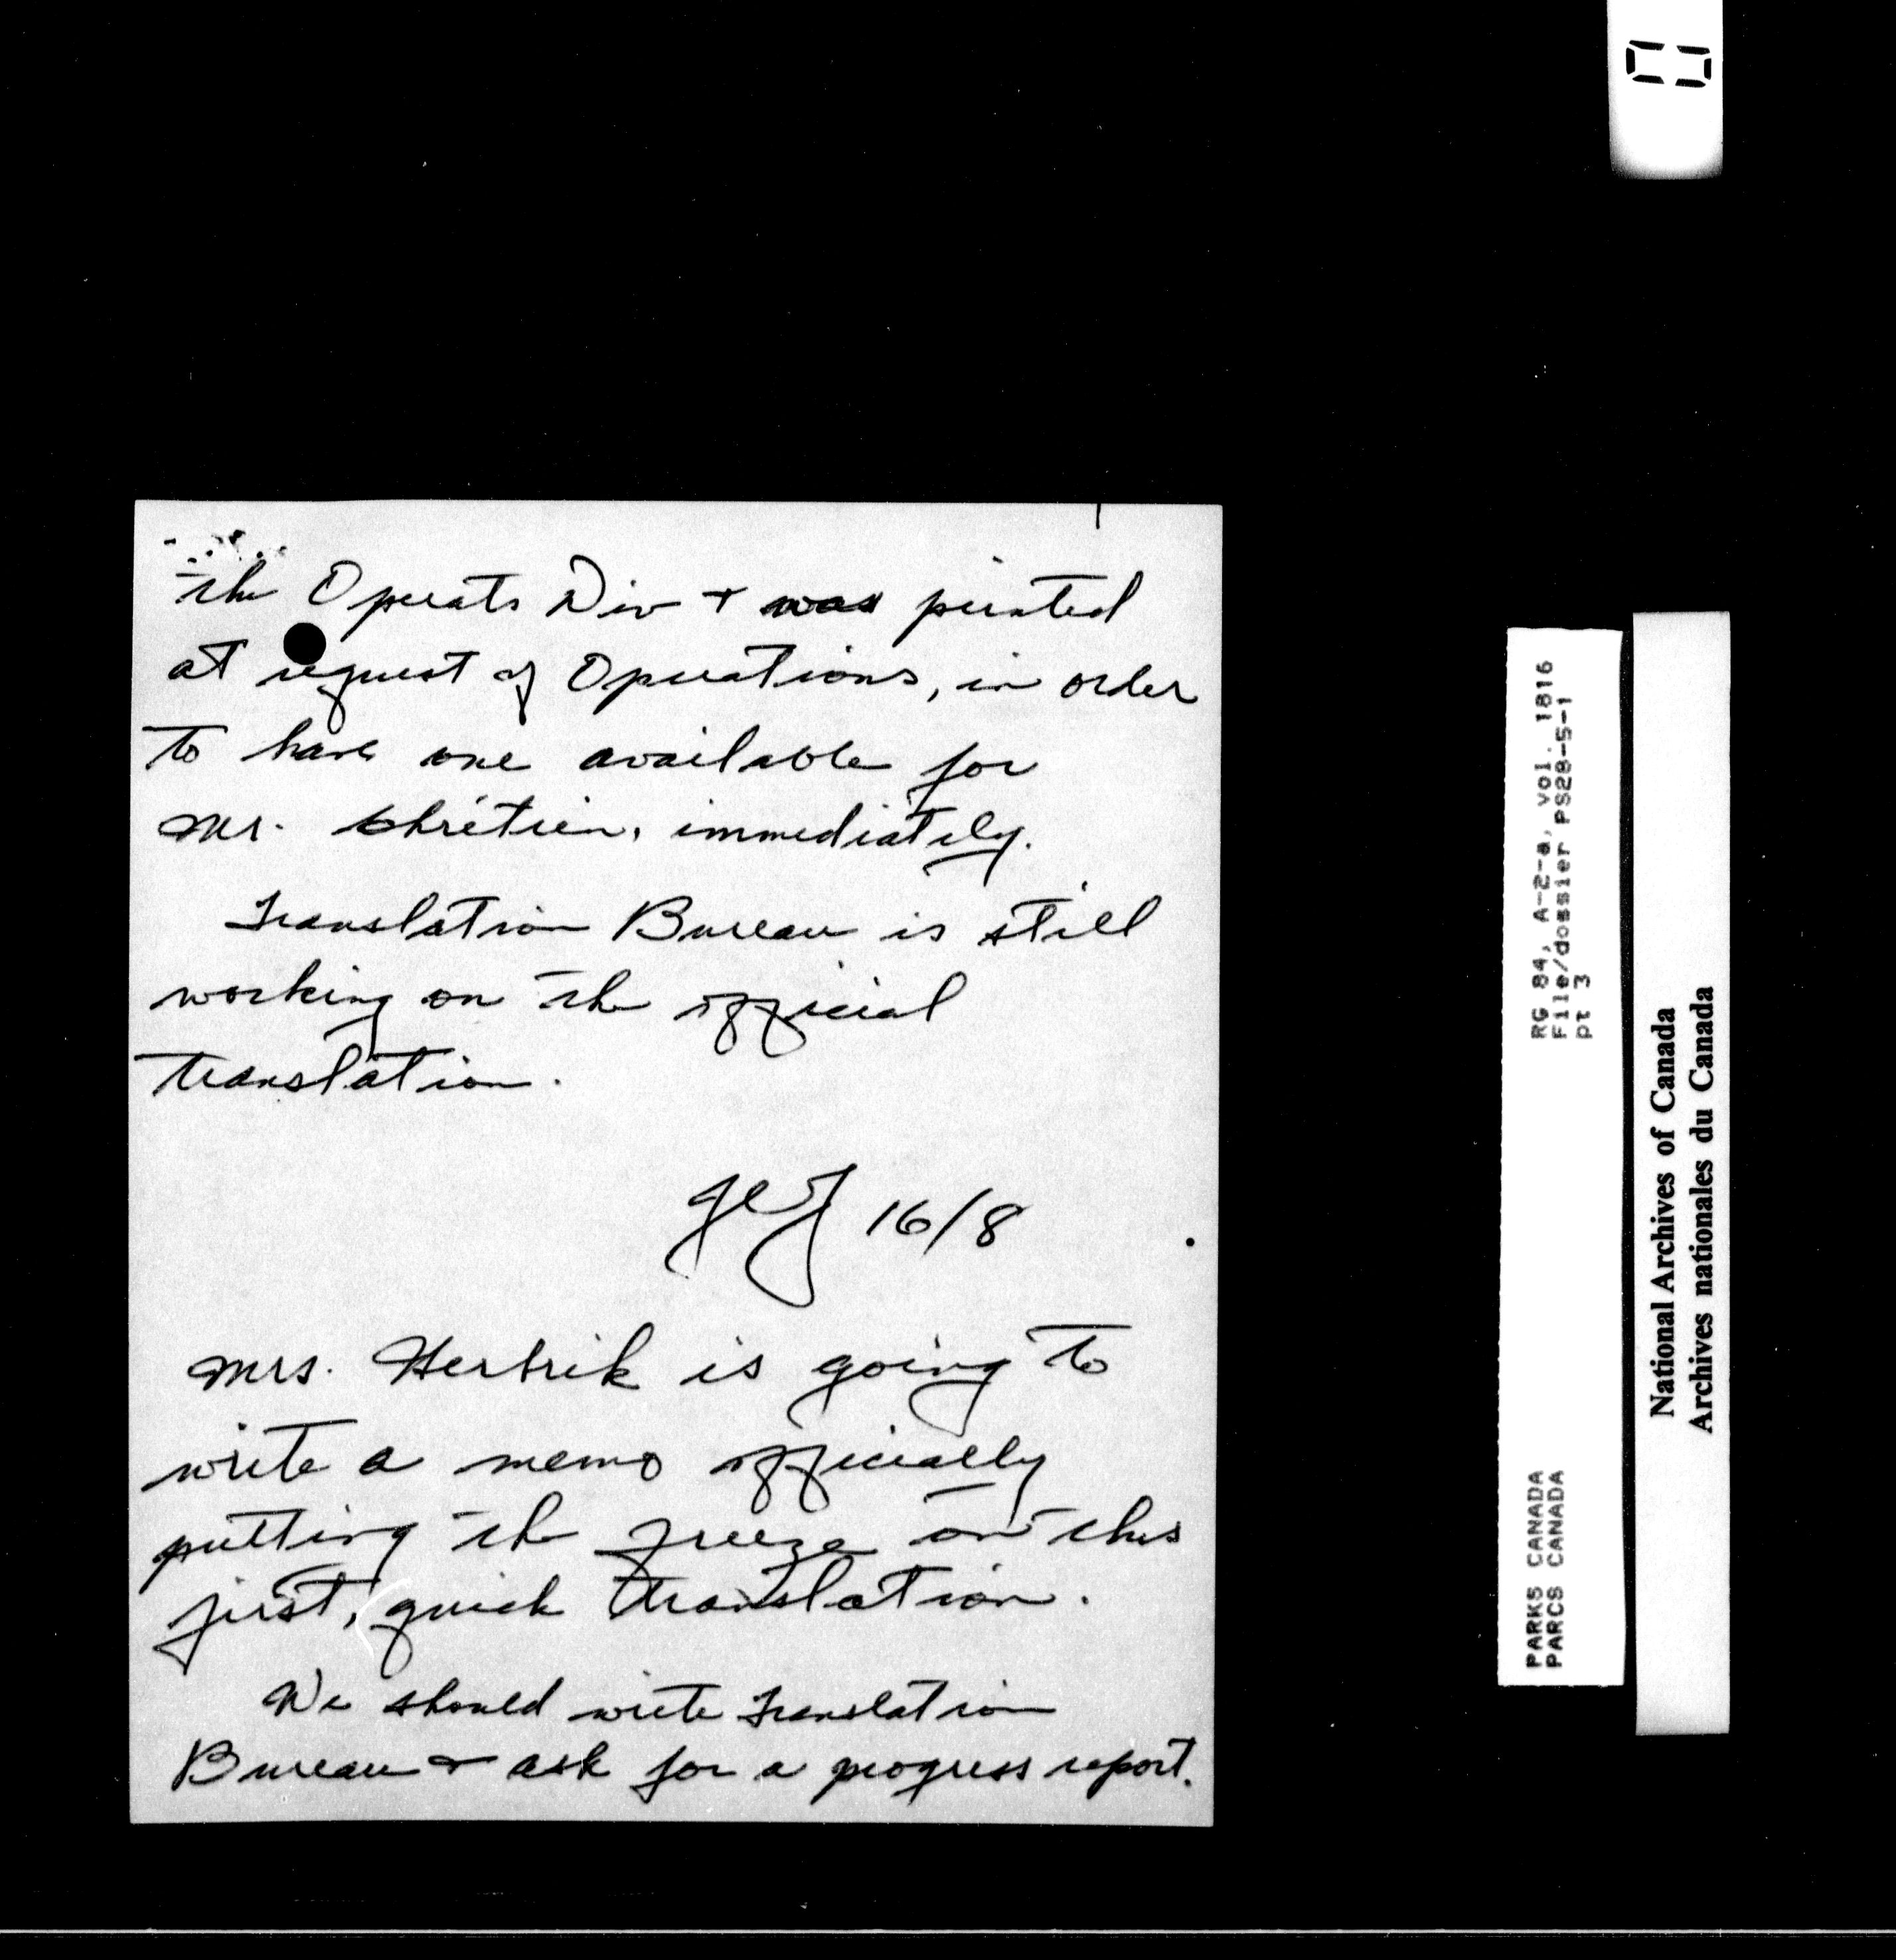 the Operats Div + was printed
at request of Operations, in order
to have one available for
Mr. Chrétien, immediately.
Translation Bureau is still
working on the official
translation.
16/8
Mrs. is going to
write a memo officially
putting the freeze on this
first, quick translation.
We should write Translation
Bureau + ask for a progress report.
RG 84, A-2-a, vol. 1816
File/dossier PS28-5-1
pt 3
PARKS CANADA
PARCS CANADA
National Archives of Canada
Archives nationales du Canada